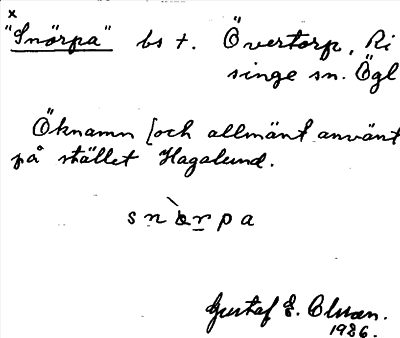 x
"Snörpa" bs t. Övertorp, Ri
singe sn. Ögl
Öknamn [och allmänt använt
på stället Hagalund.
snö̀rpa
Gustaf E. Olsson.
1926.